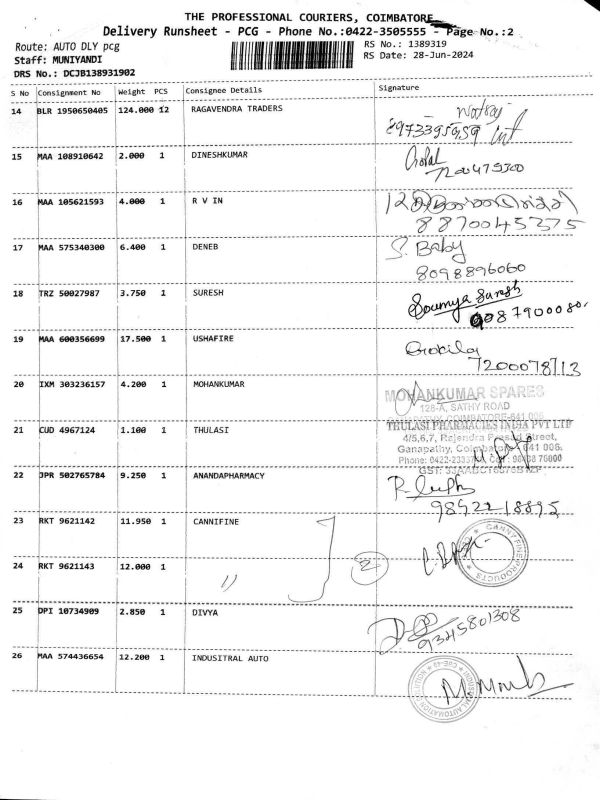 THE PROFESSIONAL COURIERS, COIMBATORE
Delivery Runsheet - PCG - Phone No.:0422-3505555 - Page No.:2
Route: AUTO DLY pcg
RS No.: 1389319
Staff: MUNIYANDI
RS Date: 28-Jun-2024
DRS No.: DCJB138931902
S No Consignment No Weight PCS Consignee Details Signature
14 BLR 1950650405 124.000 12 RAGAVENDRA TRADERS
15 MAA 108910642 2.000 1 DINESHKUMAR
7200475300
16 MAA 105621593 4.000 1 R V IN
8870045375
17 MAA 575340300 6.400 1 DENEB S. Baby
8098896060
18 TRZ 50027987 3.750 1 SURESH Soumya Suresh
19 MAA 600356699 17.500 1 USHAFIRE Gokila
7200078713
20 IXM 303236157 4.200 1 MOHANKUMAR MOHANKUMAR SPARES
128-A, SATHY ROAD
21 CUD 4967124 1.100 1 THULASI THULASI PHARMACIES INDIA PVT LTD
4/5,6,7, Rajendra Prasad Street,
Ganapathy, Coimbatore - 641 006.
22 JPR 502765784 9.250 1 ANANDAPHARMACY
9892218895
23 RKT 9621142 11.950 1 CANNIFINE
24 RKT 9621143 12.000 1 〃 2
25 DPI 10734909 2.850 1 DIVYA
9345801308
26 MAA 574436654 12.200 1 INDUSITRAL AUTO